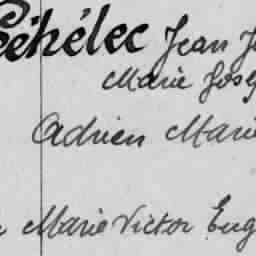 Péhélec Jean
Marie Jose
Adrien Marie
Marie Victor Eug